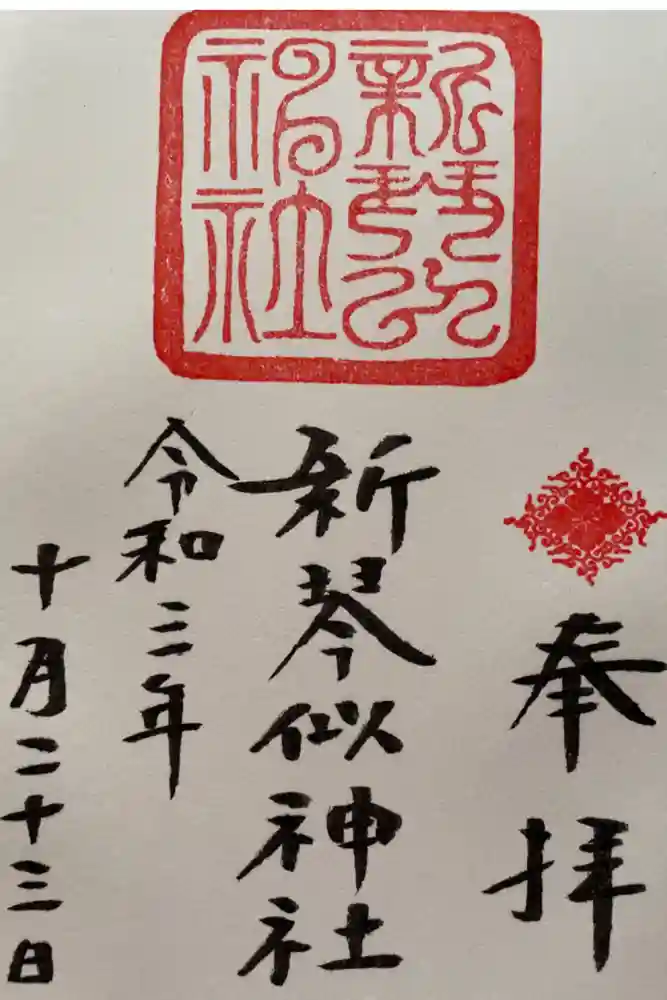 奉拝
新琴似神社
新琴似神社
令和三年
十月二十三日